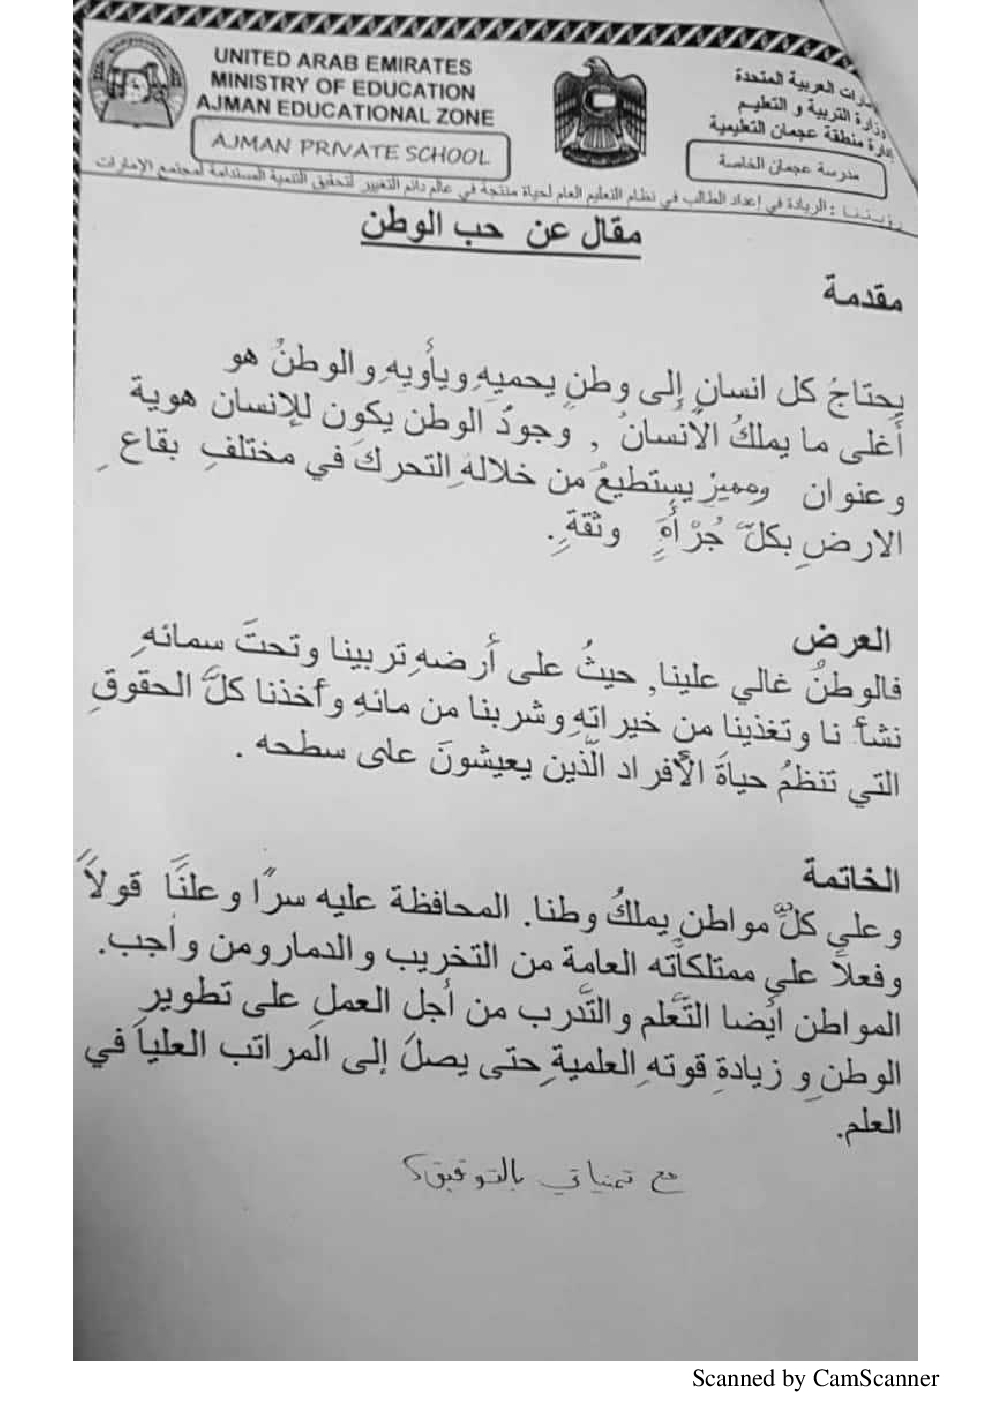 UNITED ARAB EMIRATES
MINISTRY OF EDUCATION
AJMAN EDUCATIONAL ZONE
AJMAN PRIVATE SCHOOL
العربية المتحدة
وزارة التربية و التعليم
منطقة عجمان التعليمية
مدرسة عجمان الخاصة
رؤيتنا : الريادة في إعداد الطالب في نظام التعليم العام لحياة منتجة في عالم دائم التغيير لتحقيق التنمية المستدامة لمجتمع الإمارات
مقال عن حب الوطن
مقدمة
يحتاجُ كل انسانٍ إلى وطنٍ يحميهِ ويأويهِ والوطنُ هو
أغلى ما يملكُ الإنسانُ , وجودُ الوطن يكون للإنسان هوية
وعنوان ومميز يستطيعُ من خلالهِ التحركَ في مختلفِ بقاعِ
الارضِ بكلّ جُرْأَةٍ وثقةٍ.
العرض
فالوطنُ غالي علينا, حيثُ على أرضهِ تربينا وتحتَ سمائهِ
نشأ نا وتغذينا من خيراتهِ وشربنا من مائهِ وأخذنا كلَّ الحقوقِ
التي تنظمُ حياةَ الأفراد الّذين يعيشونَ على سطحه .
الخاتمة
وعلي كلِّ مواطنٍ يملكُ وطنا. المحافظة عليه سرًا وعلنًا قولاً
وفعلاً علي ممتلكاته العامة من التخريب والدمارومن واجب.
المواطن أيضا التَّعلم والتَّدرب من أجل العملِ على تطوير
الوطنِ و زيادةِ قوتهِ العلميةِ حتى يصلَ إلى المراتب العليا في
العلم.
مع تمنياتي بالتوفيق؟
Scanned by CamScanner